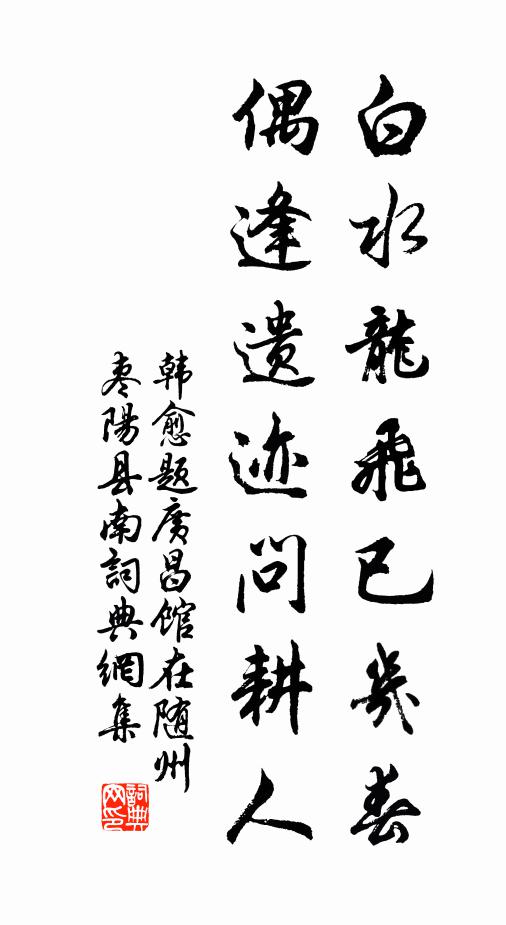 白水龍飛已幾春
偶逢遺迹問耕人
韩愈题廣昌馆在随州
枣陽县南詞典網集
詞典网印